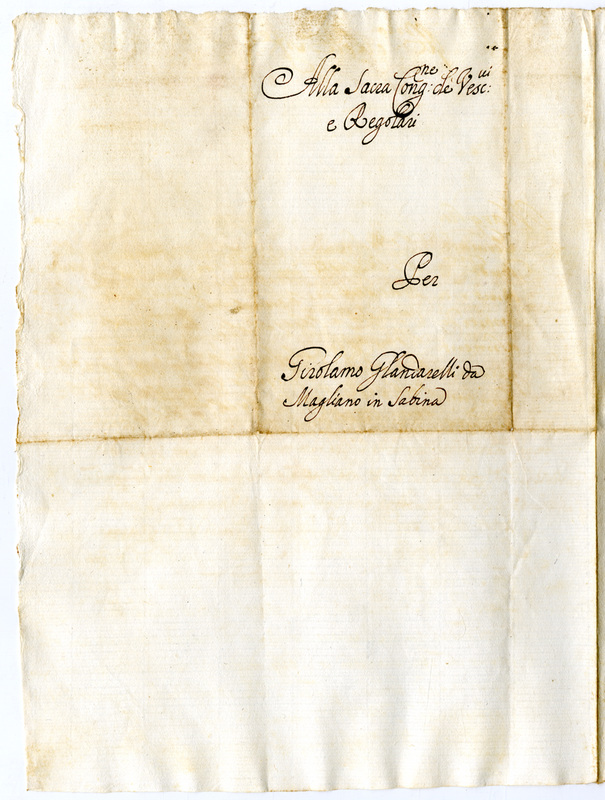 Alla Sacra Cong:ne de Vesc:vi
e Regolari
Per
Girolamo Glandarelli da
Magliano in Sabina